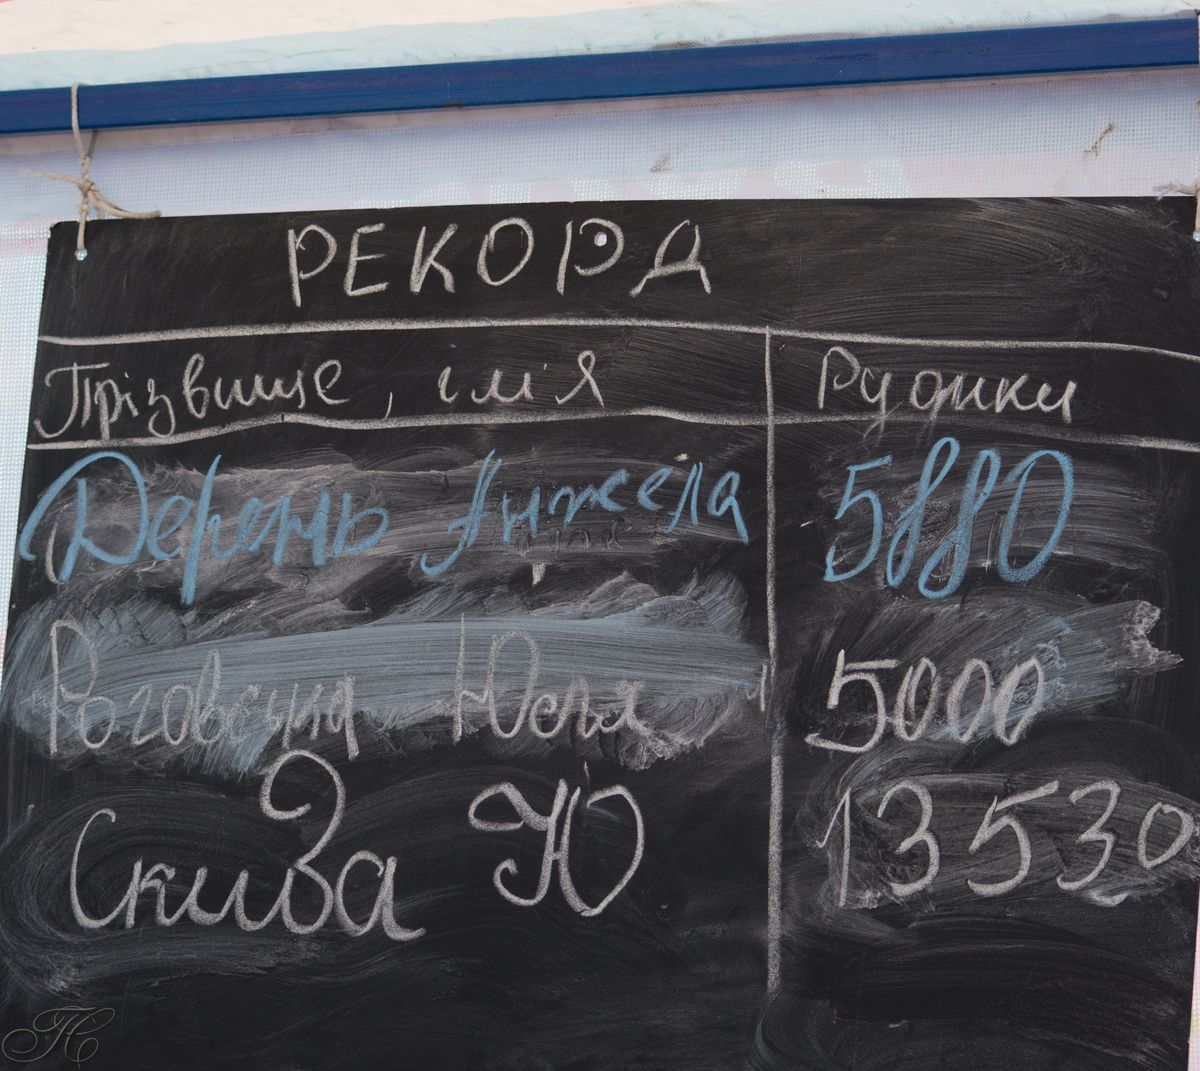 РЕКОРД
Прізвище, ім'я Рудики
Дерень Анжела 5880
Юля 5000
Скиба Ю 13530